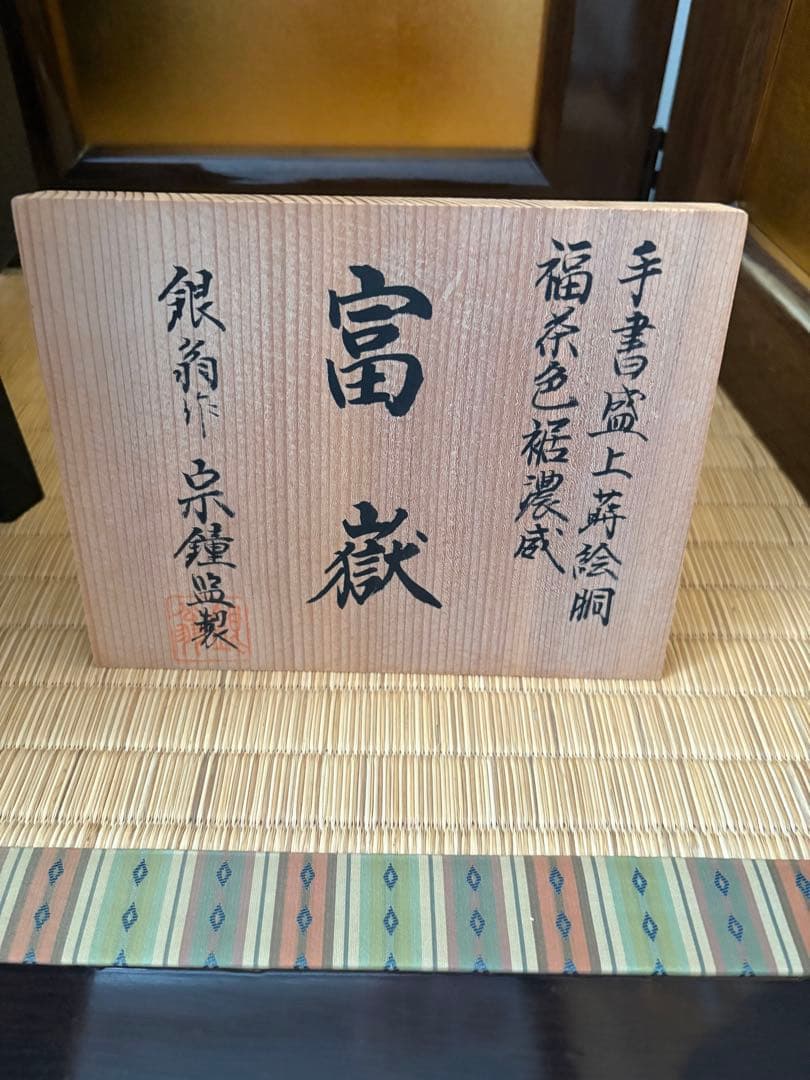 手書盛上蒔絵胴
福茶色裾濃威
富嶽
銀翁作 宗鐘監製